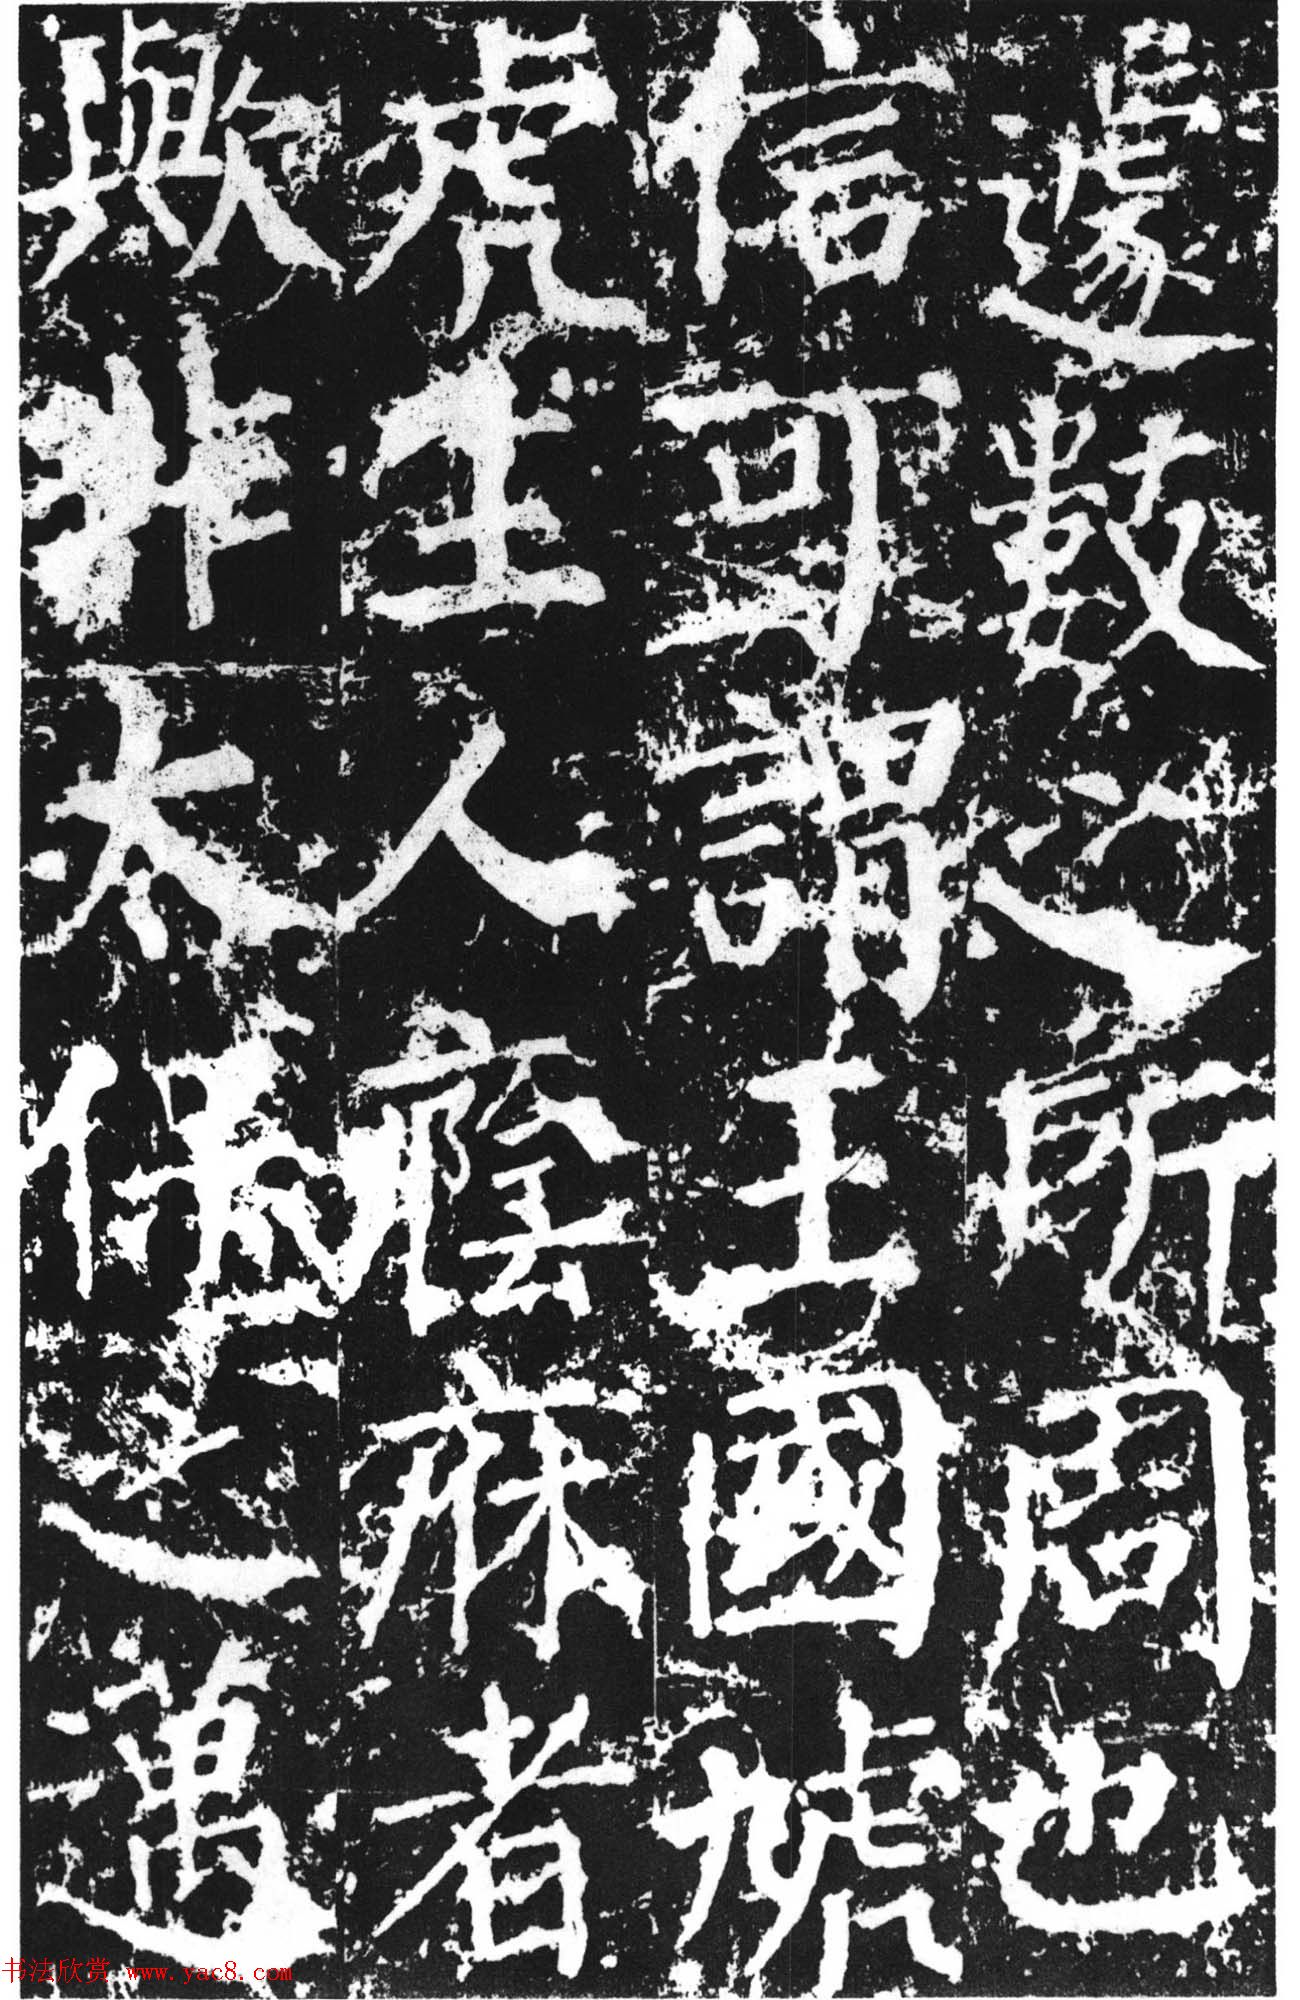 遽數之所周也
信可謂王國虓
虎生人廕庥者
歟非太保之邁
书法欣赏 www.yac8.com